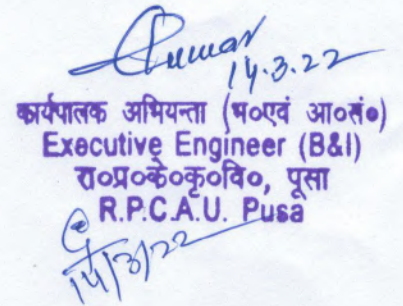 14.3.22
कार्यपालक अभियन्ता (भ०एवं आ०सं०)
Executive Engineer (B&I)
रा०प्र०के०कृ०वि०, पूसा
R.P.C.A.U. Pusa
14/3/22